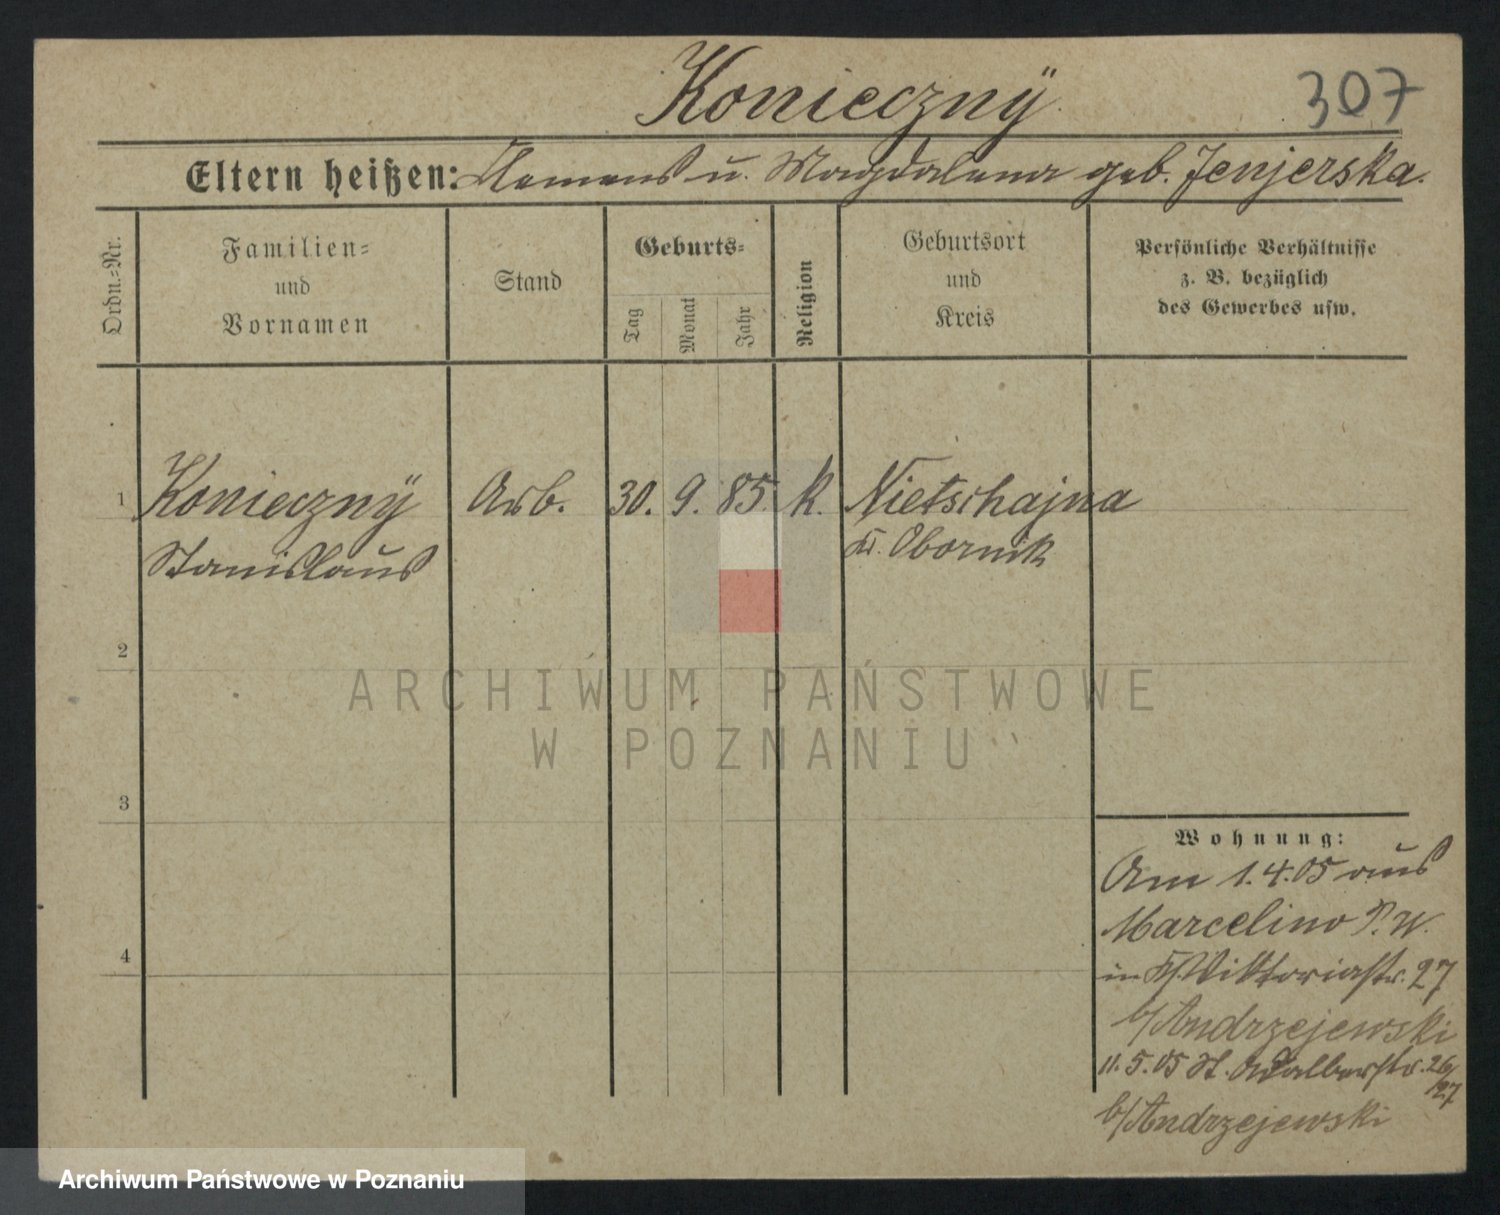 Konieczny
307
Eltern heißen: Clemens u. Magdalena geb. Jenjerska.
Ordn.-Nr.
Familien-
und
Vornamen
Stand
Geburts-
Tag
Monat
Jahr
Religion
Geburtsort
und
Kreis
Persönliche Verhältnisse
z. B. bezüglich
des Gewerbes usw.
1 Konieczny Arb. 30. 9. 85. k. Nietschajna
Stanislaus Kr. Obornik
2
ARCHIWUM PAŃSTWOWE
W POZNANIU
3
Wohnung:
Am 1.4.05 aus
Marcelino P. W.
4
in Viktoriastr. 27
b/Andrzejewski
11.5.05 St. Adalbertstr. 26/27
b/Andrzejewski
Archiwum Państwowe w Poznaniu